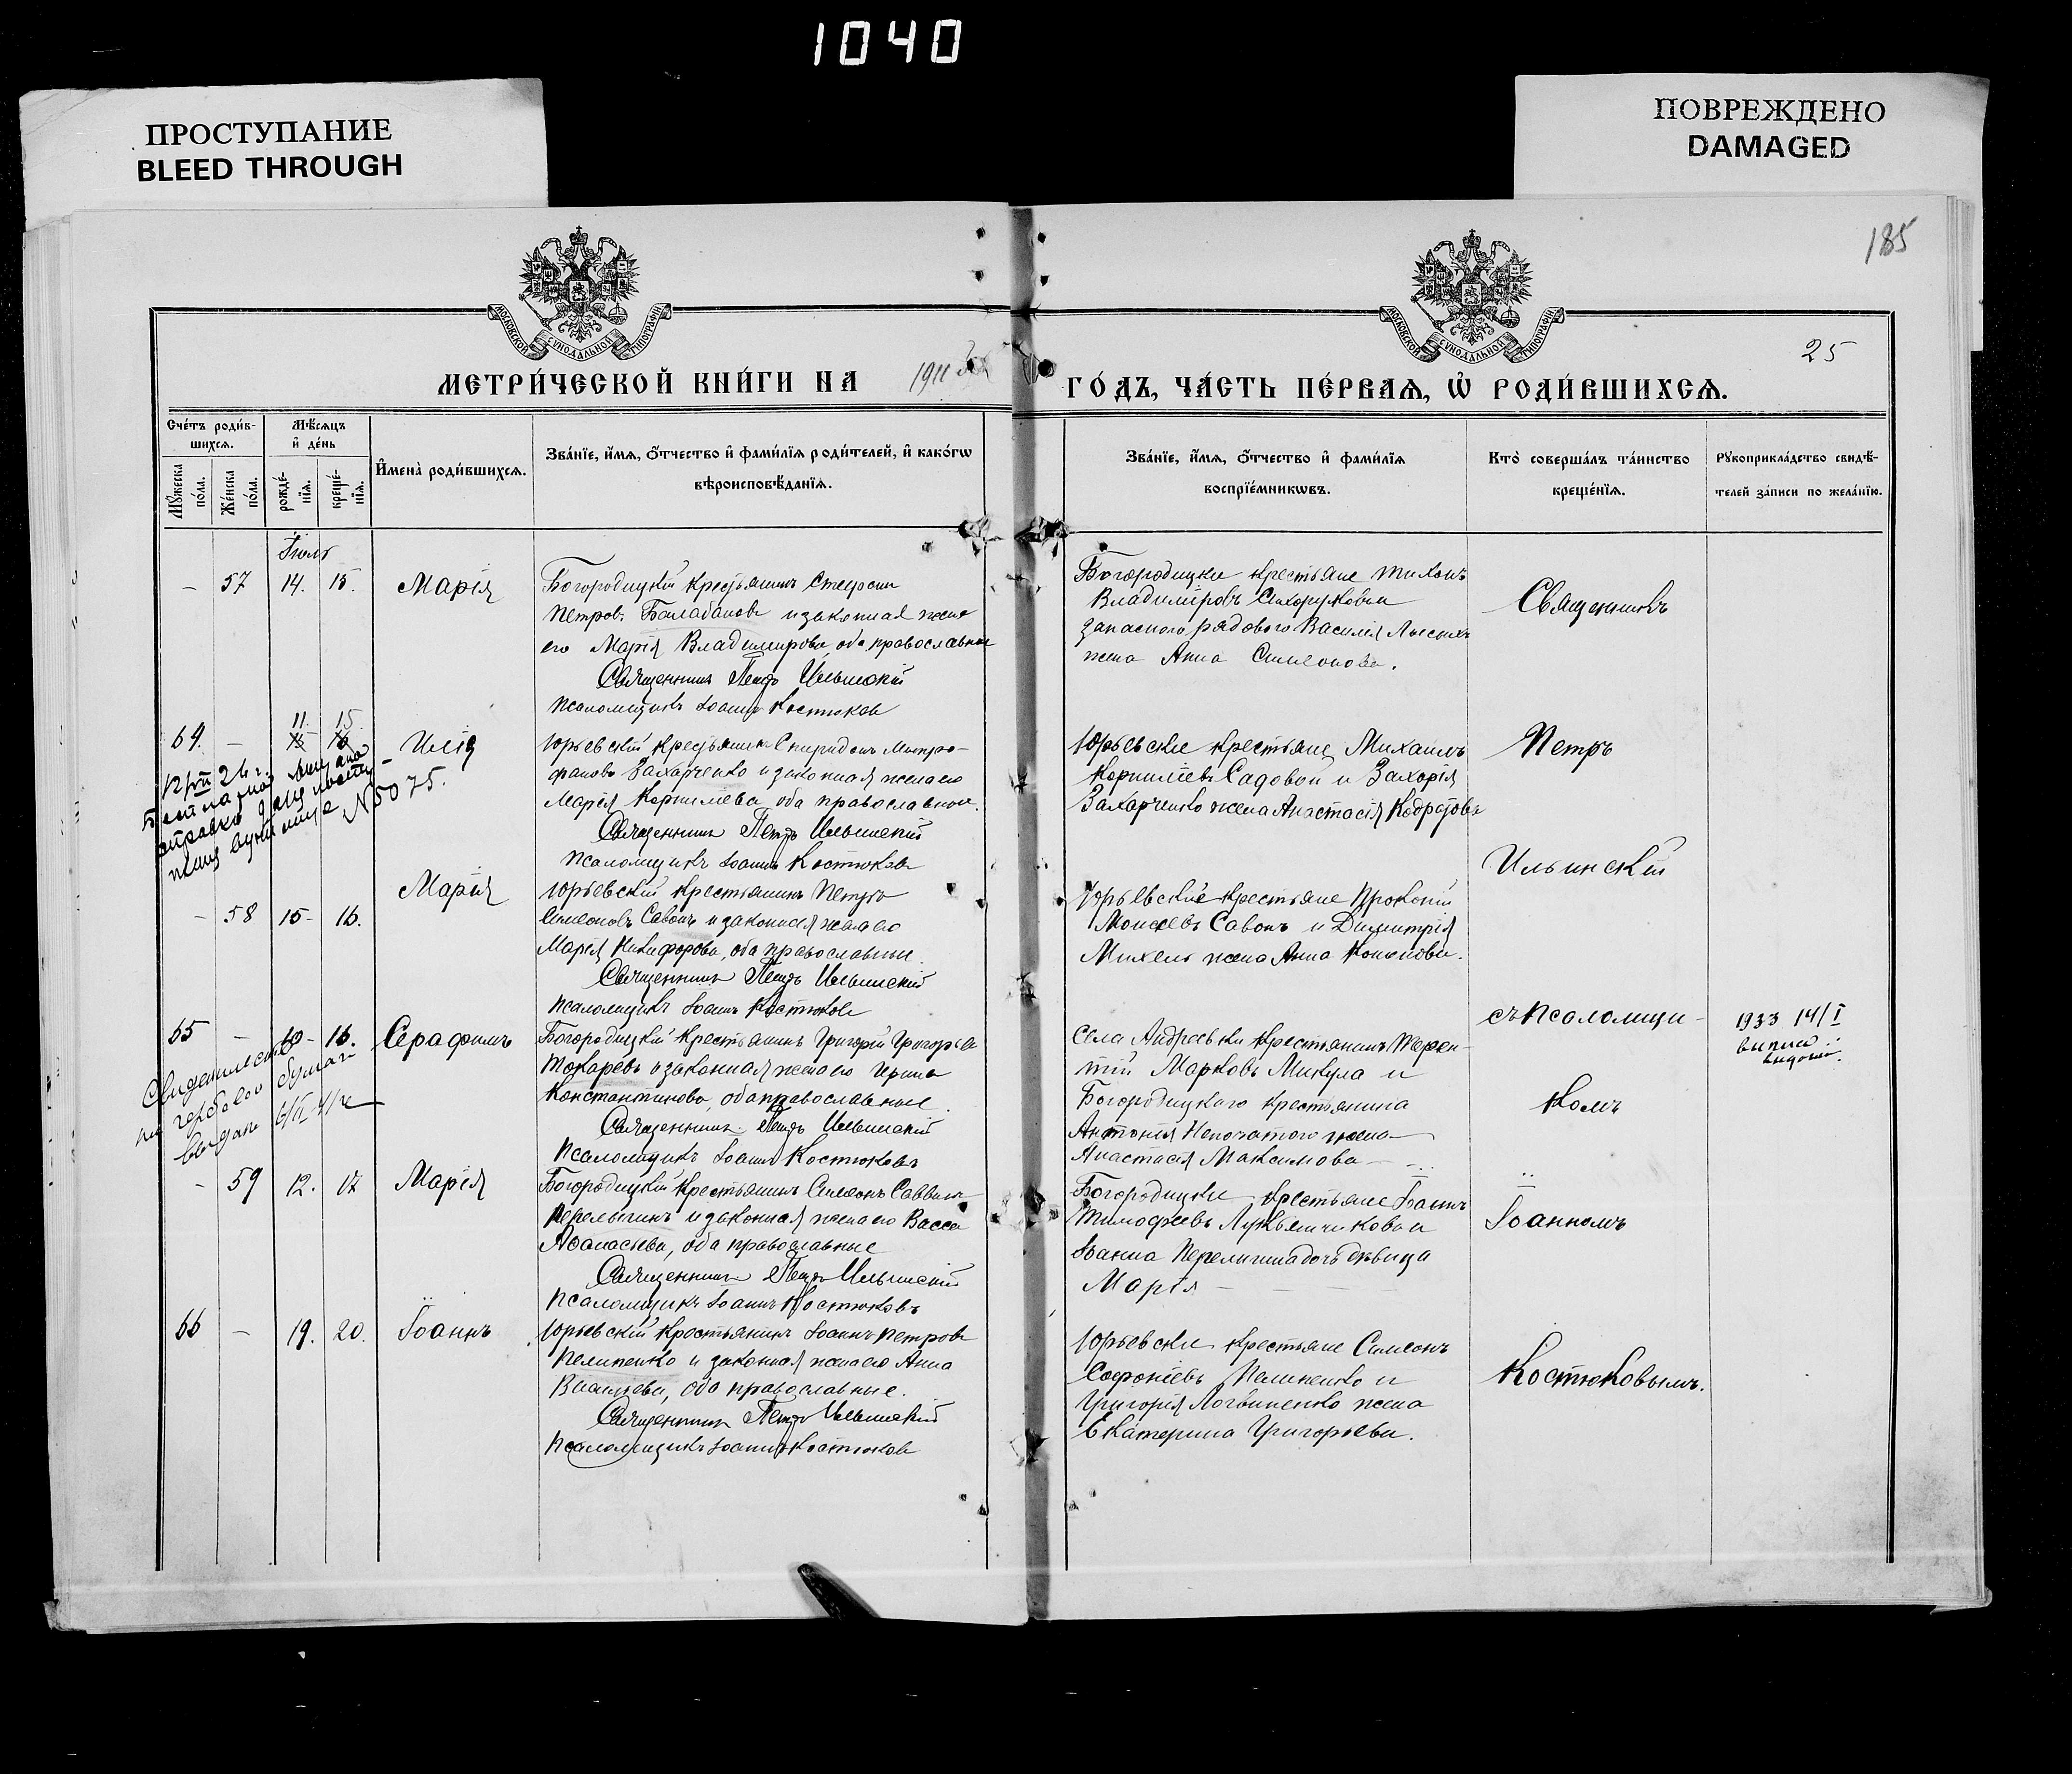 1040
ПРОСТУПАНИЕ
BLEED THROUGH
ПОВРЕЖДЕНО
DAMAGED
185
МОСКОВСКОЙ СѴНОДАЛЬНОЙ ТИПОГРАФІИ
МОСКОВСКОЙ СѴНОДАЛЬНОЙ ТИПОГРАФІИ
25
МЕТРИ́ЧЕСКОЙ КНИ́ГИ НА 1911
ГО́ДЪ, ЧА́СТЬ ПЕ́РВАѦ, Ѡ РОДИ́ВШИХСѦ.
Сче́тъ роди́в-
шихсѧ.
Мꙋ́жеска по́ла.
Же́нска по́ла.
Мѣ́сѧцъ
и де́нь
рожде́-
нїѧ.
креще́-
нїѧ.
И҆мена̀ роди́вшихсѧ.
Зва́нїе, и҆́мѧ, ѻ҆́тчество и҆ фами́лїѧ роди́телей, и҆ како́гѡ
вѣроисповѣ́данїѧ.
Зва́нїе, и҆́мѧ, ѻ҆́тчество и҆ фами́лїѧ
воспрїе́мникѡвъ.
Кто̀ соверша́лъ та́инство
креще́нїѧ.
Рꙋкоприкла́дство свидѣ́-
телей за́писи по жела́нїю.
Іюль
– 57 14. 15. Марія
Богородицкій крестьянинъ
Петровъ Балабановъ и законная жена
его Марія Владимирова, оба православные
Священникъ Петръ Ильинскій
Псаломщикъ Іоаннъ Костюковъ
Богородицкіе крестьяне Тихонъ
Владиміровъ и
запаснаго рядового Василія Лысыхъ
жена Анна Симеонова.
Священникъ
11. 15
64. – 15 16 Илія
Юрьевскій крестьянинъ Спиридонъ Митро-
фановъ Захарченко и законная жена его
Марія Корнилева, оба православные.
Священникъ Петръ Ильинскій
Псаломщикъ Іоаннъ Костюковъ
Юрьевскіе крестьяне Михаилъ
Корниліевъ Садовой и Захарія
Захарченко жена Анастасія
Петръ
12/VII 24 г.
N 5075.
Ильинскій
– 58 15- 16. Марія
Юрьевскій крестьянинъ Петръ
Симеоновъ Савонъ и законная жена его
Марія Никифорова, оба православные.
Священникъ Петръ Ильинскій
Псаломщикъ Іоаннъ Костюковъ
Юрьевскіе крестьяне Прокопій
Моисеевъ Савонъ и Димитрія
Михель жена Анна Кононова.
съ псаломщи-
65 – 10- 16. Серафимъ
Богородицкій крестьянинъ Григорій Григорьевъ
Токаревъ и законная жена его Ирина
Константинова, оба православные.
Священникъ Петръ Ильинскій
Псаломщикъ Іоаннъ Костюковъ
Села Андреевки крестьянинъ Терен-
тій Марковъ Микула и
Богородицкаго крестьянина
Антонія Непочатого жена
Анастасія Максимова
комъ
1933 14/I
выпись
выдана.
Свидетельство
на гербовой бумаге
выдано
– 59 12. 17 Марія
Богородицкій крестьянинъ Симеонъ Саввинъ
Перелыгинъ и законная жена его Васса
Аѳанасьева, оба православные
Священникъ Петръ Ильинскій
Псаломщикъ Іоаннъ Костюковъ
Богородицкіе крестьяне Іоаннъ
Тимофеевъ Лукьянчиковъ и
Іоанна Перелигина дочь девица
Марія
Іоанномъ
66 – 19. 20. Іоаннъ
Юрьевскій крестьянинъ Іоаннъ Петровъ
Пелипенко и законная жена его Анна
Васильева, оба православные.
Священникъ Петръ Ильинскій
Псаломщикъ Іоаннъ Костюковъ
Юрьевскіе крестьяне Симеонъ
Софоніевъ Пелипенко и
Григорія Логвиненко жена
Екатерина Григорьева.
Костюковымъ.